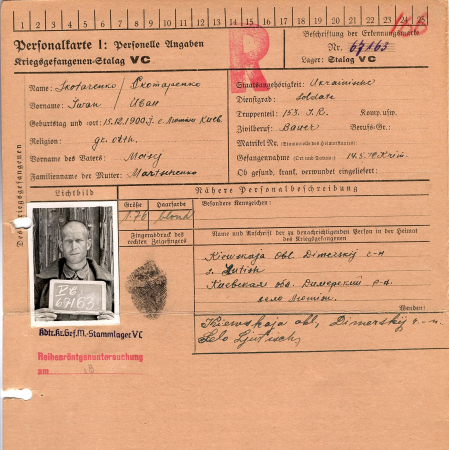 1 2 3 4 5 6 7 8 9 10 11 12 13 14 15 16 17 18 19 20 21 22 23 24 25
Personalkarte I: Personelle Angaben
Kriegsgefangenen-Stalag VC
R
Beschriftung der Erkennungsmarke
Nr. 67163
Lager: Stalag VC
Des Kriegsgefangenen
Name: Skotarenko / Скотаренко
Vorname: Iwan / Иван
Geburtstag und -ort: 15.12.1900
Religion: gr. orth.
Vorname des Vaters:
Familienname der Mutter: Martschenko
Staatsangehörigkeit: Ukrainische
Dienstgrad: Soldat
Truppenteil: 153. I.R. Komp. usw.
Zivilberuf: Bauer Berufs-Gr.:
Matrikel Nr. (Stammrolle des Heimatstaates):
Gefangennahme (Ort und Datum): 14.5.42 Krim
Ob gesund, krank, verwundet eingeliefert:
Lichtbild
Nähere Personalbeschreibung
Größe
Haarfarbe
Besondere Kennzeichen:
1.70
blond
Fingerabdruck des
rechten Zeigefingers
Name und Anschrift der zu benachrichtigenden Person in der Heimat
des Kriegsgefangenen
Kiewskaja obl. Dimerskij
s. Lutish
Киевская обл. Димерский р-н
село
Wenden!
Kiewskaja obl, Dimerskij
Selo Ljutisch
67163
Kdtr. Kr. Gef. M.-Stammlager VC
Reihenröntgenuntersuchung
am